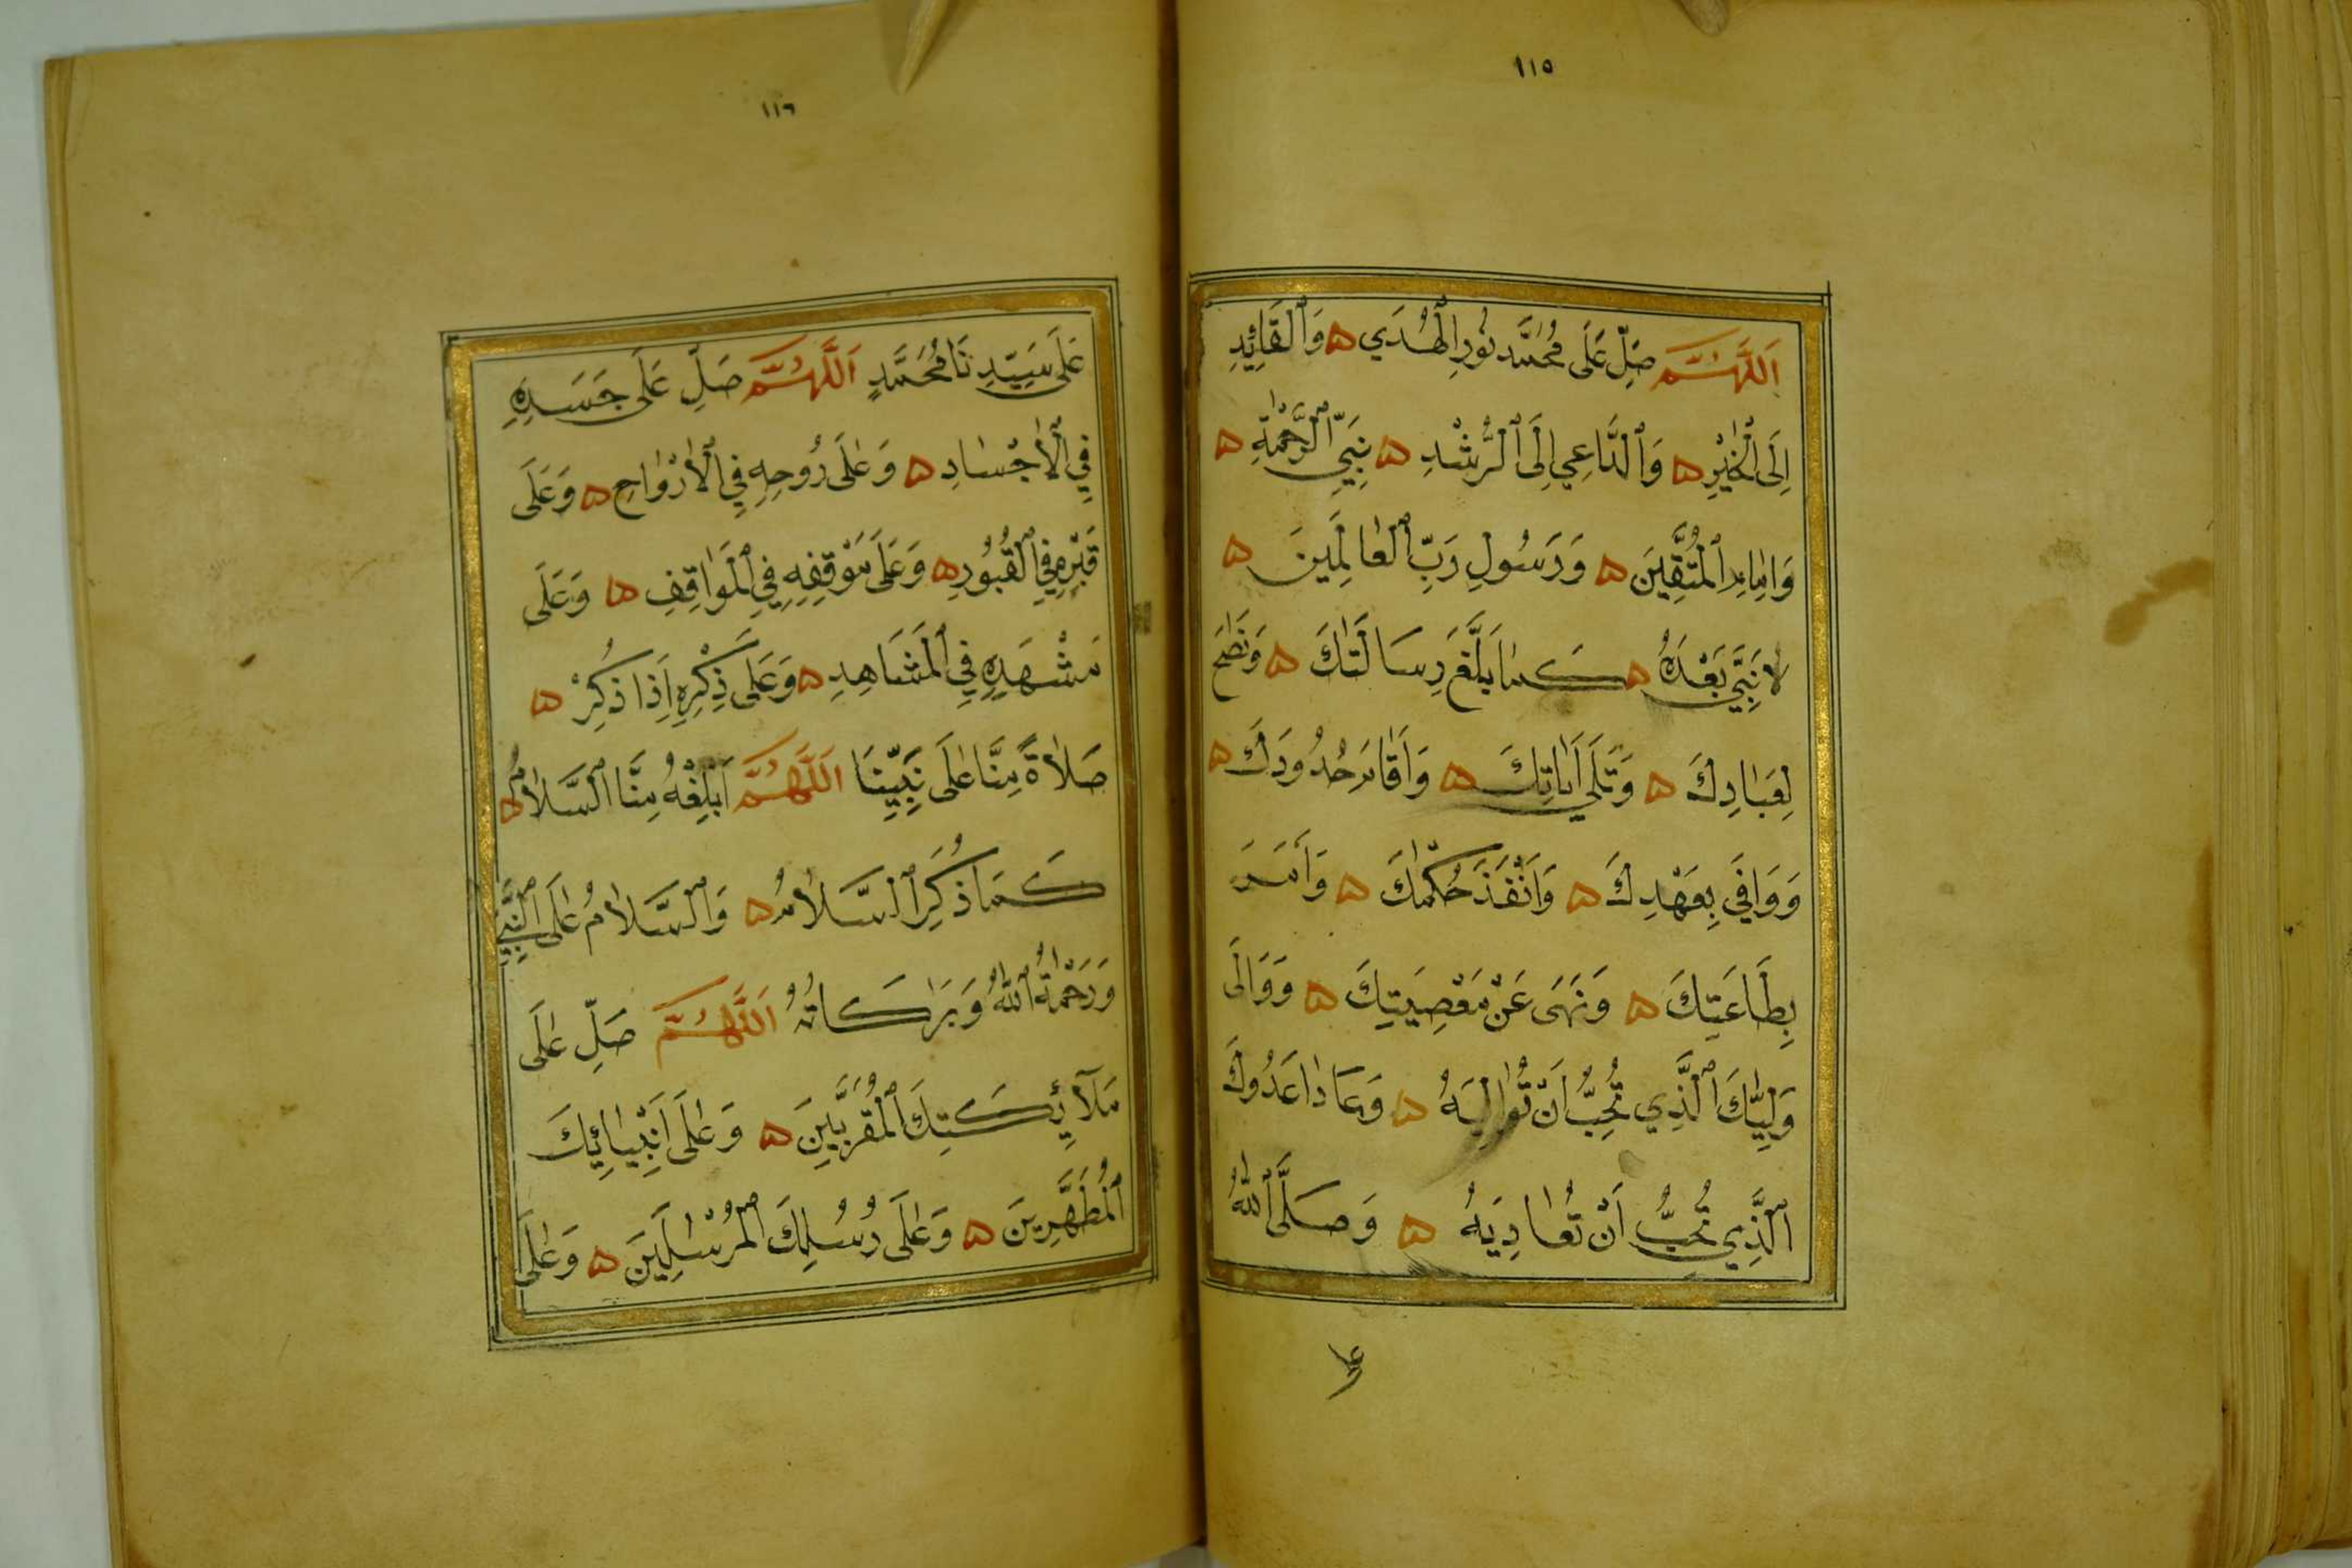 ١١٥
اَللّٰهُمَّ صَلِّ عَلَى مُحَمَّدٍ نُورِ الْهُدَي ه وَالْقَائِدِ
اِلَى الْخَيْرِ ه وَالدَّاعِي اِلَى الرُّشْدِ ه نَبِيِّ الرَّحْمَةِ ه
وَاِمَامِ الْمُتَّقِينَ ه وَرَسُولِ رَبِّ الْعَالَمِينَ ه
لَا نَبِيَّ بَعْدَهُ ه كَمَا بَلَّغَ رِسَالَتَكَ ه وَنَصَحَ
لِعِبَادِكَ ه وَتَلَي اٰيَاتِكَ ه وَاَقَامَ حُدُودَكَ ه
وَوَافَي بِعَهْدِكَ ه وَاَنْفَذَ حُكْمَكَ ه وَاَمَرَ
بِطَاعَتِكَ ه وَنَهَى عَنْ مَعْصِيَتِكَ ه وَوَالَى
وَلِيَّكَ الَّذِي تُحِبُّ اَنْ تُوَالِيَهُ ه وَعَادَا عَدُوَّكَ
الَّذِي تُحِبُّ اَنْ تُعَادِيَهُ ه وَصَلَّى اللهُ
على
١١٦
عَلَى سَيِّدِنَا مُحَمَّدٍ اَللّٰهُمَّ صَلِّ عَلَى جَسَدِهِ
فِي الْاَجْسَادِ ه وَعَلَى رُوحِهِ فِي الْاَرْوَاحِ ه وَعَلَى
قَبْرِهِ فِي الْقُبُورِ ه وَعَلَى مَوْقِفِهِ فِي الْمَوَاقِفِ ه وَعَلَى
مَشْهَدِهِ فِي الْمَشَاهِدِ ه وَعَلَى ذِكْرِهِ اِذَا ذُكِرَ ه
صَلَاةً مِنَّا عَلَى نَبِيِّنَا اَللّٰهُمَّ اَبْلِغْهُ مِنَّا السَّلَامَ ه
كَمَا ذُكِرَ السَّلَامُ ه وَالسَّلَامُ عَلَى النَّبِيِّ
وَرَحْمَةُ اللهِ وَبَرَكَاتُهُ اَللّٰهُمَّ صَلِّ عَلَى
مَلَآئِكَتِكَ الْمُقَرَّبِينَ ه وَعَلَى اَنْبِيَائِكَ
الْمُطَهَّرِينَ ه وَعَلَى رُسُلِكَ الْمُرْسَلِينَ ه وَعَلَى